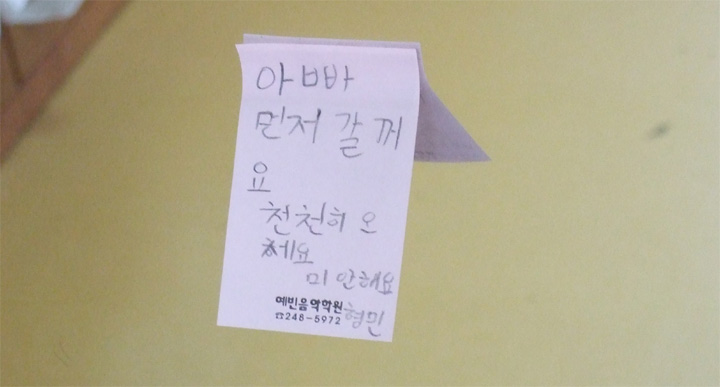 아빠
먼저 갈꺼
요
천천히 오
세요
미안해요
예빈음악학원 형민
☎248-5972